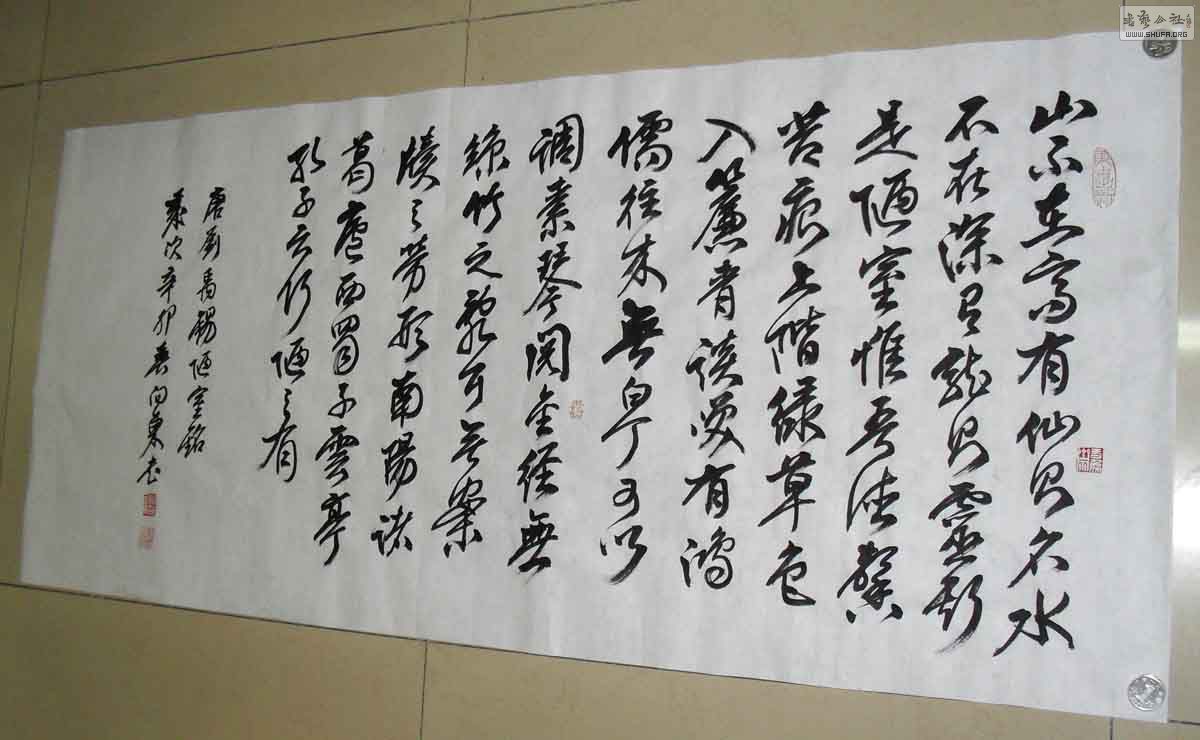 山不在高有仙則名水
不在深有龍則靈斯
是陋室惟吾德馨
苔痕上階綠草色
入簾青談笑有鴻
儒往來無白丁可以
調素琴閱金經無
絲竹之亂耳無案
牘之勞形南陽諸
葛廬西蜀子雲亭
孔子云何陋之有
唐劉禹錫陋室銘
歲次辛卯春向東書
書藝公社
WWW.SHUFA.ORG